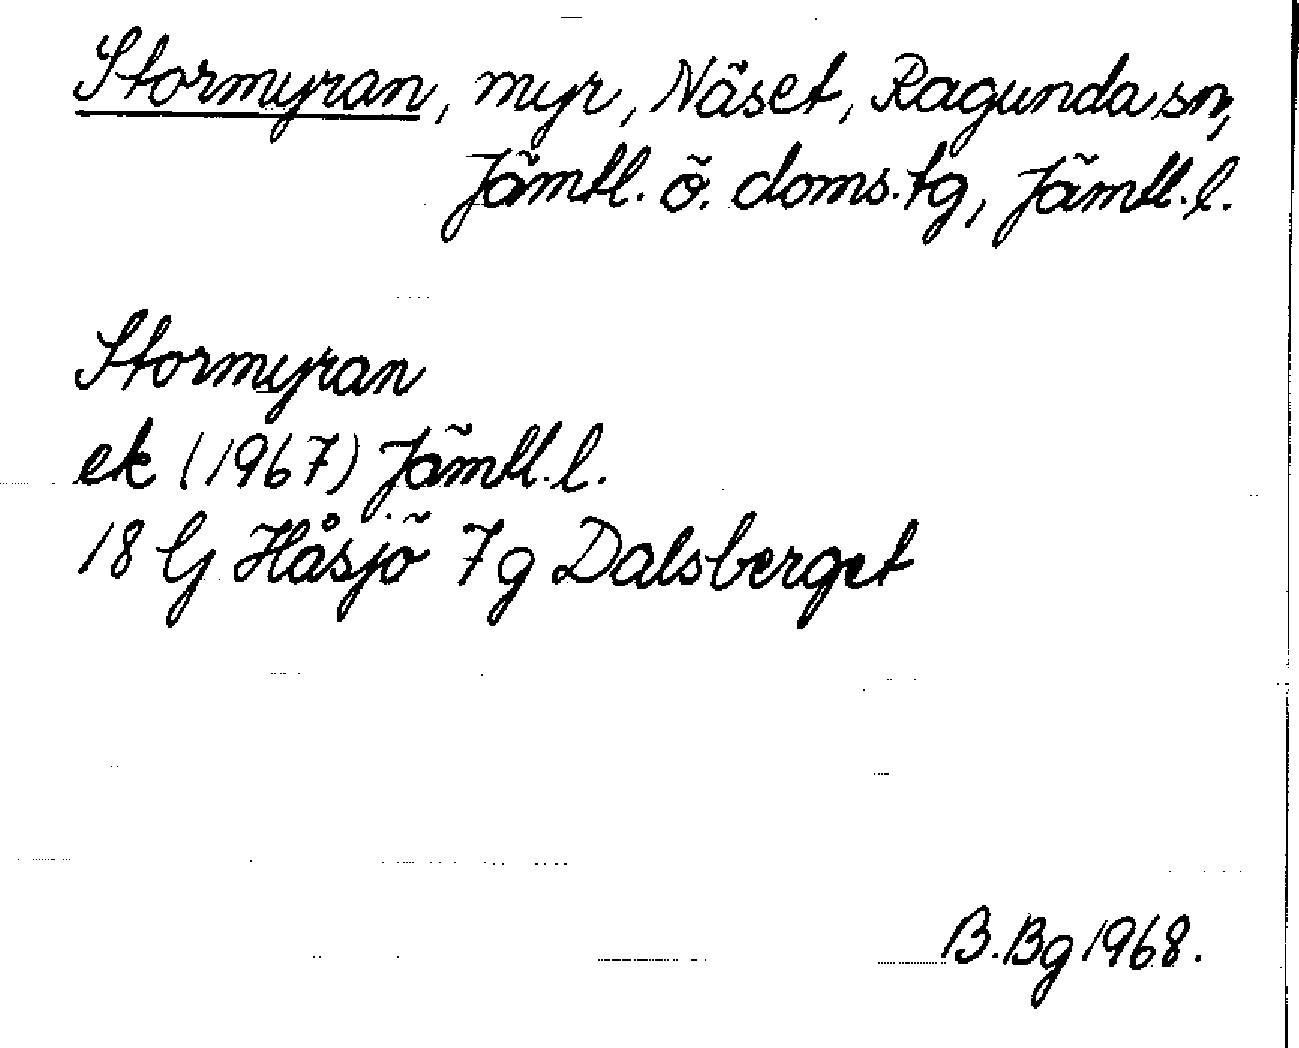 Stormyran, myr, Näset, Ragunda sn,
Jämtl. ö. doms.tg, Jämtl. l.
Stormyran
ek (1967) Jämtl. l.
18 G Håsjö 7g Dalsberget
B.Bg 1968.